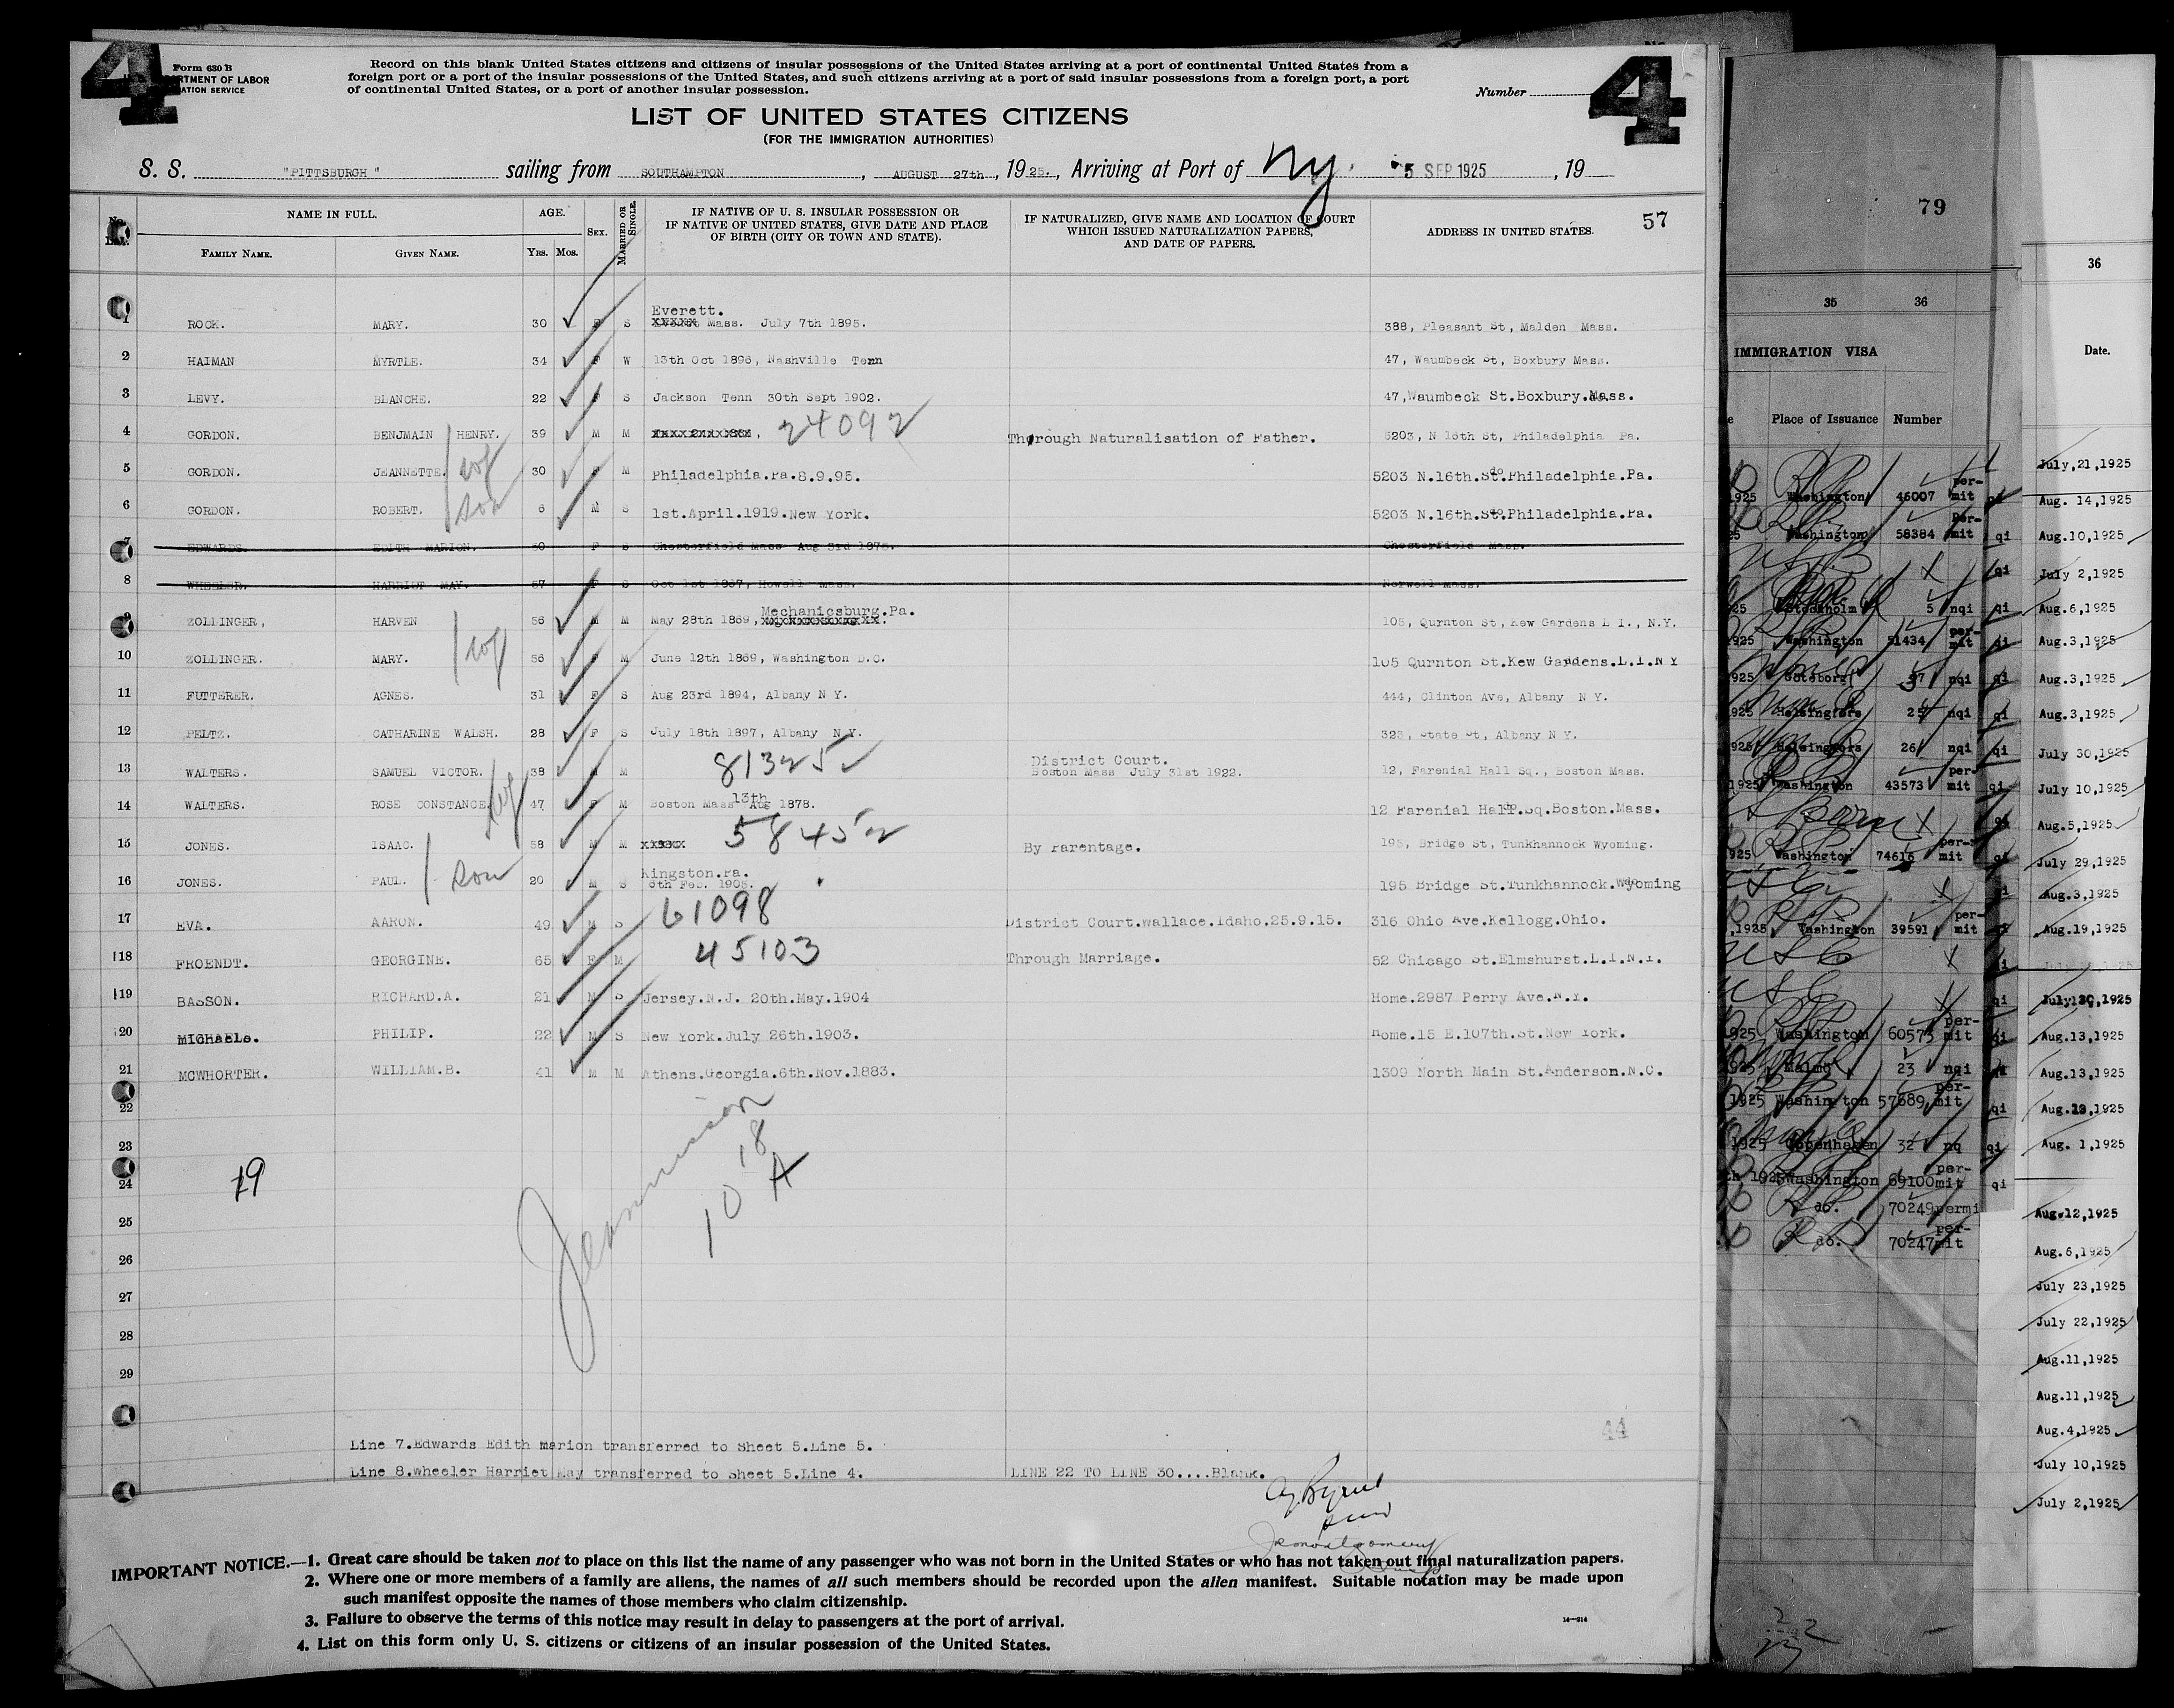 4
4
Form 630 B
RTMENT OF LABOR
ATION SERVICE
Record on this blank United States citizens and citizens of insular possessions of the United States arriving at a port of continental United States from a
foreign port or a port of the insular possessions of the United States, and such citizens arriving at a port of said insular possessions from a foreign port, a port
of continental United States, or a port of another insular possession.
Number
LIST OF UNITED STATES CITIZENS
(FOR THE IMMIGRATION AUTHORITIES)
S. S. "PITTSBURGH" sailing from SOUTHAMPTON, AUGUST 27th, 1925., Arriving at Port of Ny. 5 SEP 1925, 19
NAME IN FULL. AGE. SEX. MARRIED OR SINGLE. IF NATIVE OF U. S. INSULAR POSSESSION OR IF NATIVE OF UNITED STATES, GIVE DATE AND PLACE OF BIRTH (CITY OR TOWN AND STATE). IF NATURALIZED, GIVE NAME AND LOCATION OF COURT WHICH ISSUED NATURALIZATION PAPERS, AND DATE OF PAPERS. ADDRESS IN UNITED STATES. 57
FAMILY NAME. GIVEN NAME. YRS. MOS.
Everett.
1 ROCK. MARY. 30 F S Mass. July 7th 1895. 388, Pleasant St, Malden Mass.
2 HAIMAN MYRTLE. 34 F W 13th Oct 1896, Nashville Tenn 47, Waumbeck St, Boxbury Mass.
3 LEVY. BLANCHE. 22 F S Jackson Tenn 30th Sept 1902. 47,Waumbeck St.Boxbury.Mass.
4 GORDON. BENJMAIN HENRY. 39 M M 24092 Thorough Naturalisation of Father. 5203, N 16th St, Philadelphia Pa.
5 GORDON. JEANNETTE. wf 30 F M Philadelphia.Pa.8.9.95. 5203 N.16th.St.Philadelphia.Pa.
6 GORDON. ROBERT. son 6 M S 1st.April.1919.New York. 5203 N.16th.St.Philadelphia.Pa.
7 EDWARDS. EDITH MARION. 50 F S Chesterfield Mass Aug 3rd 1875. Chesterfield Mass.
8 WHEELER. HARRIET MAY. 57 F S Oct 1st 1867, Howell Mass. Norwell Mass.
Mechanicsburg.Pa.
9 ZOLLINGER, HARVEN 56 M M May 28th 1869, 105, Qurnton St, Kew Gardens L I., N.Y.
10 ZOLLINGER. MARY. wf 56 F M June 12th 1869, Washington D.C. 105 Qurnton St.Kew Gardens.L.I.N Y
11 FUTTERER. AGNES. 31 F S Aug 23rd 1894, Albany N Y. 444, Clinton Ave, Albany N Y.
12 PELTZ. CATHARINE WALSH. 28 F S July 18th 1897, Albany N.Y. 323, State St, Albany N Y.
13 WALTERS. SAMUEL VICTOR. 38 M M 81325 District Court. Boston Mass July 31st 1922. 12, Farenial Hall Sq., Boston Mass.
14 WALTERS. ROSE CONSTANCE. wf 47 F M Boston Mass 13th Aug 1878. 12 Farenial Hall.Sq.Boston.Mass.
15 JONES. ISAAC. 58 M M 58452 By Parentage. 195, Bridge St, Tunkhannock Wyoming.
Kingston.Pa.
16 JONES. PAUL. son 20 M S 6th Feb. 1905. 195 Bridge St.Tunkhannock.Wyoming
17 EVA. AARON. 49 M S 61098 District Court.Wallace.Idaho.25.9.15. 316 Ohio Ave.Kellogg.Ohio.
18 FROENDT. GEORGINE. 65 F M 45103 Through Marriage. 52 Chicago St.Elmshurst.L.I.N.Y.
19 BASSON. RICHARD.A. 21 M S Jersey.N.J. 20th.May.1904 Home.2987 Perry Ave.N.Y.
20 MICHAELS. PHILIP. 22 M S New York.July 26th.1903. Home.15 E.107th.St.New York.
21 MCWHORTER. WILLIAM.B. 41 M M Athens.Georgia.6th.Nov.1883. 1309 North Main St.Anderson.N.C.
22
23
24 19
25
26
27
28
29
18
10 A
44
Line 7.Edwards Edith marion transferred to Sheet 5.Line 5.
Line 8.Wheeler Harriet May transferred to Sheet 5.Line 4. LINE 22 TO LINE 30....Blank.
IMPORTANT NOTICE.—1. Great care should be taken not to place on this list the name of any passenger who was not born in the United States or who has not taken out final naturalization papers.
2. Where one or more members of a family are aliens, the names of all such members should be recorded upon the alien manifest. Suitable notation may be made upon
such manifest opposite the names of those members who claim citizenship.
3. Failure to observe the terms of this notice may result in delay to passengers at the port of arrival.
4. List on this form only U. S. citizens or citizens of an insular possession of the United States.
14—914
79
35 36
IMMIGRATION VISA
Place of Issuance Number
1925 Washington 46007 permit
Washington 58384 permit qi
Stockholm 5 nqi qi
1925 Washington 51434 permit qi
1925 Goteborg 37 nqi qi
1925 Helsingfors 25 nqi qi
1925 Helsingfors 26 nqi qi
1925 Washington 43573 permit qi
1925 Washington 74616 permit qi
,1925, Washington 39591 permit
1925 Washington 60573 permit
Malmo 23 nqi
1925 Washington 57689 permit qi
1925 Copenhagen 32 nq qi
1925 Washington 69100 permit qi
do. 70249 permi
do. 70247 permit
36
Date.
July,21,1925
Aug. 14,1925
Aug.10,1925
July 2,1925
Aug.6,1925
Aug.3,1925
Aug.3,1925
Aug.3,1925
July 30,1925
July 10,1925
Aug.5,1925
July 29,1925
Aug.3,1925
Aug.19,1925
July 30,1925
Aug.13,1925
Aug.13,1925
Aug. 1,1925
Aug.12,1925
Aug.6,1925
July 23,1925
July 22,1925
Aug.11,1925
Aug.11,1925
Aug.4,1925
July 10,1925
July 2,1925